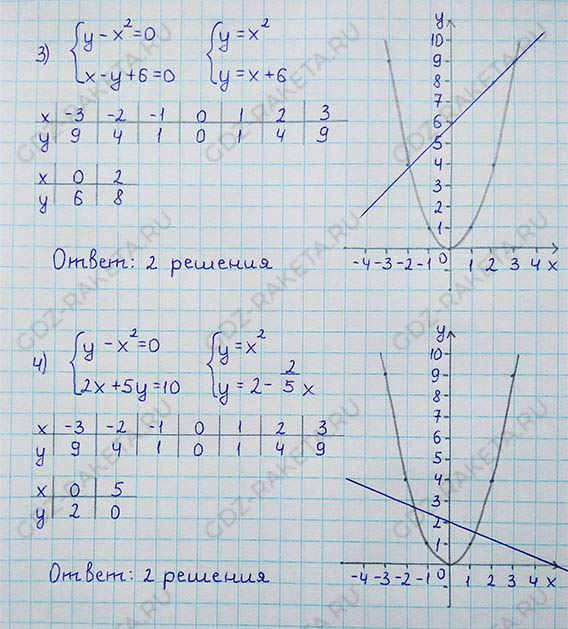 3) { y - x² = 0    { y = x²
{ x - y + 6 = 0    { y = x + 6
x | -3 | -2 | -1 | 0 | 1 | 2 | 3
y | 9 | 4 | 1 | 0 | 1 | 4 | 9
x | 0 | 2
y | 6 | 8
Ответ: 2 решения
y
10
9
8
7
6
5
4
3
2
1
-4 -3 -2 -1 0 1 2 3 4 x
4) { y - x² = 0    { y = x²
{ 2x + 5y = 10    { y = 2 - 2/5 x
x | -3 | -2 | -1 | 0 | 1 | 2 | 3
y | 9 | 4 | 1 | 0 | 1 | 4 | 9
x | 0 | 5
y | 2 | 0
Ответ: 2 решения
y
10
9
8
7
6
5
4
3
2
1
-4 -3 -2 -1 0 1 2 3 4 x
GDZ-RAKETA.RU